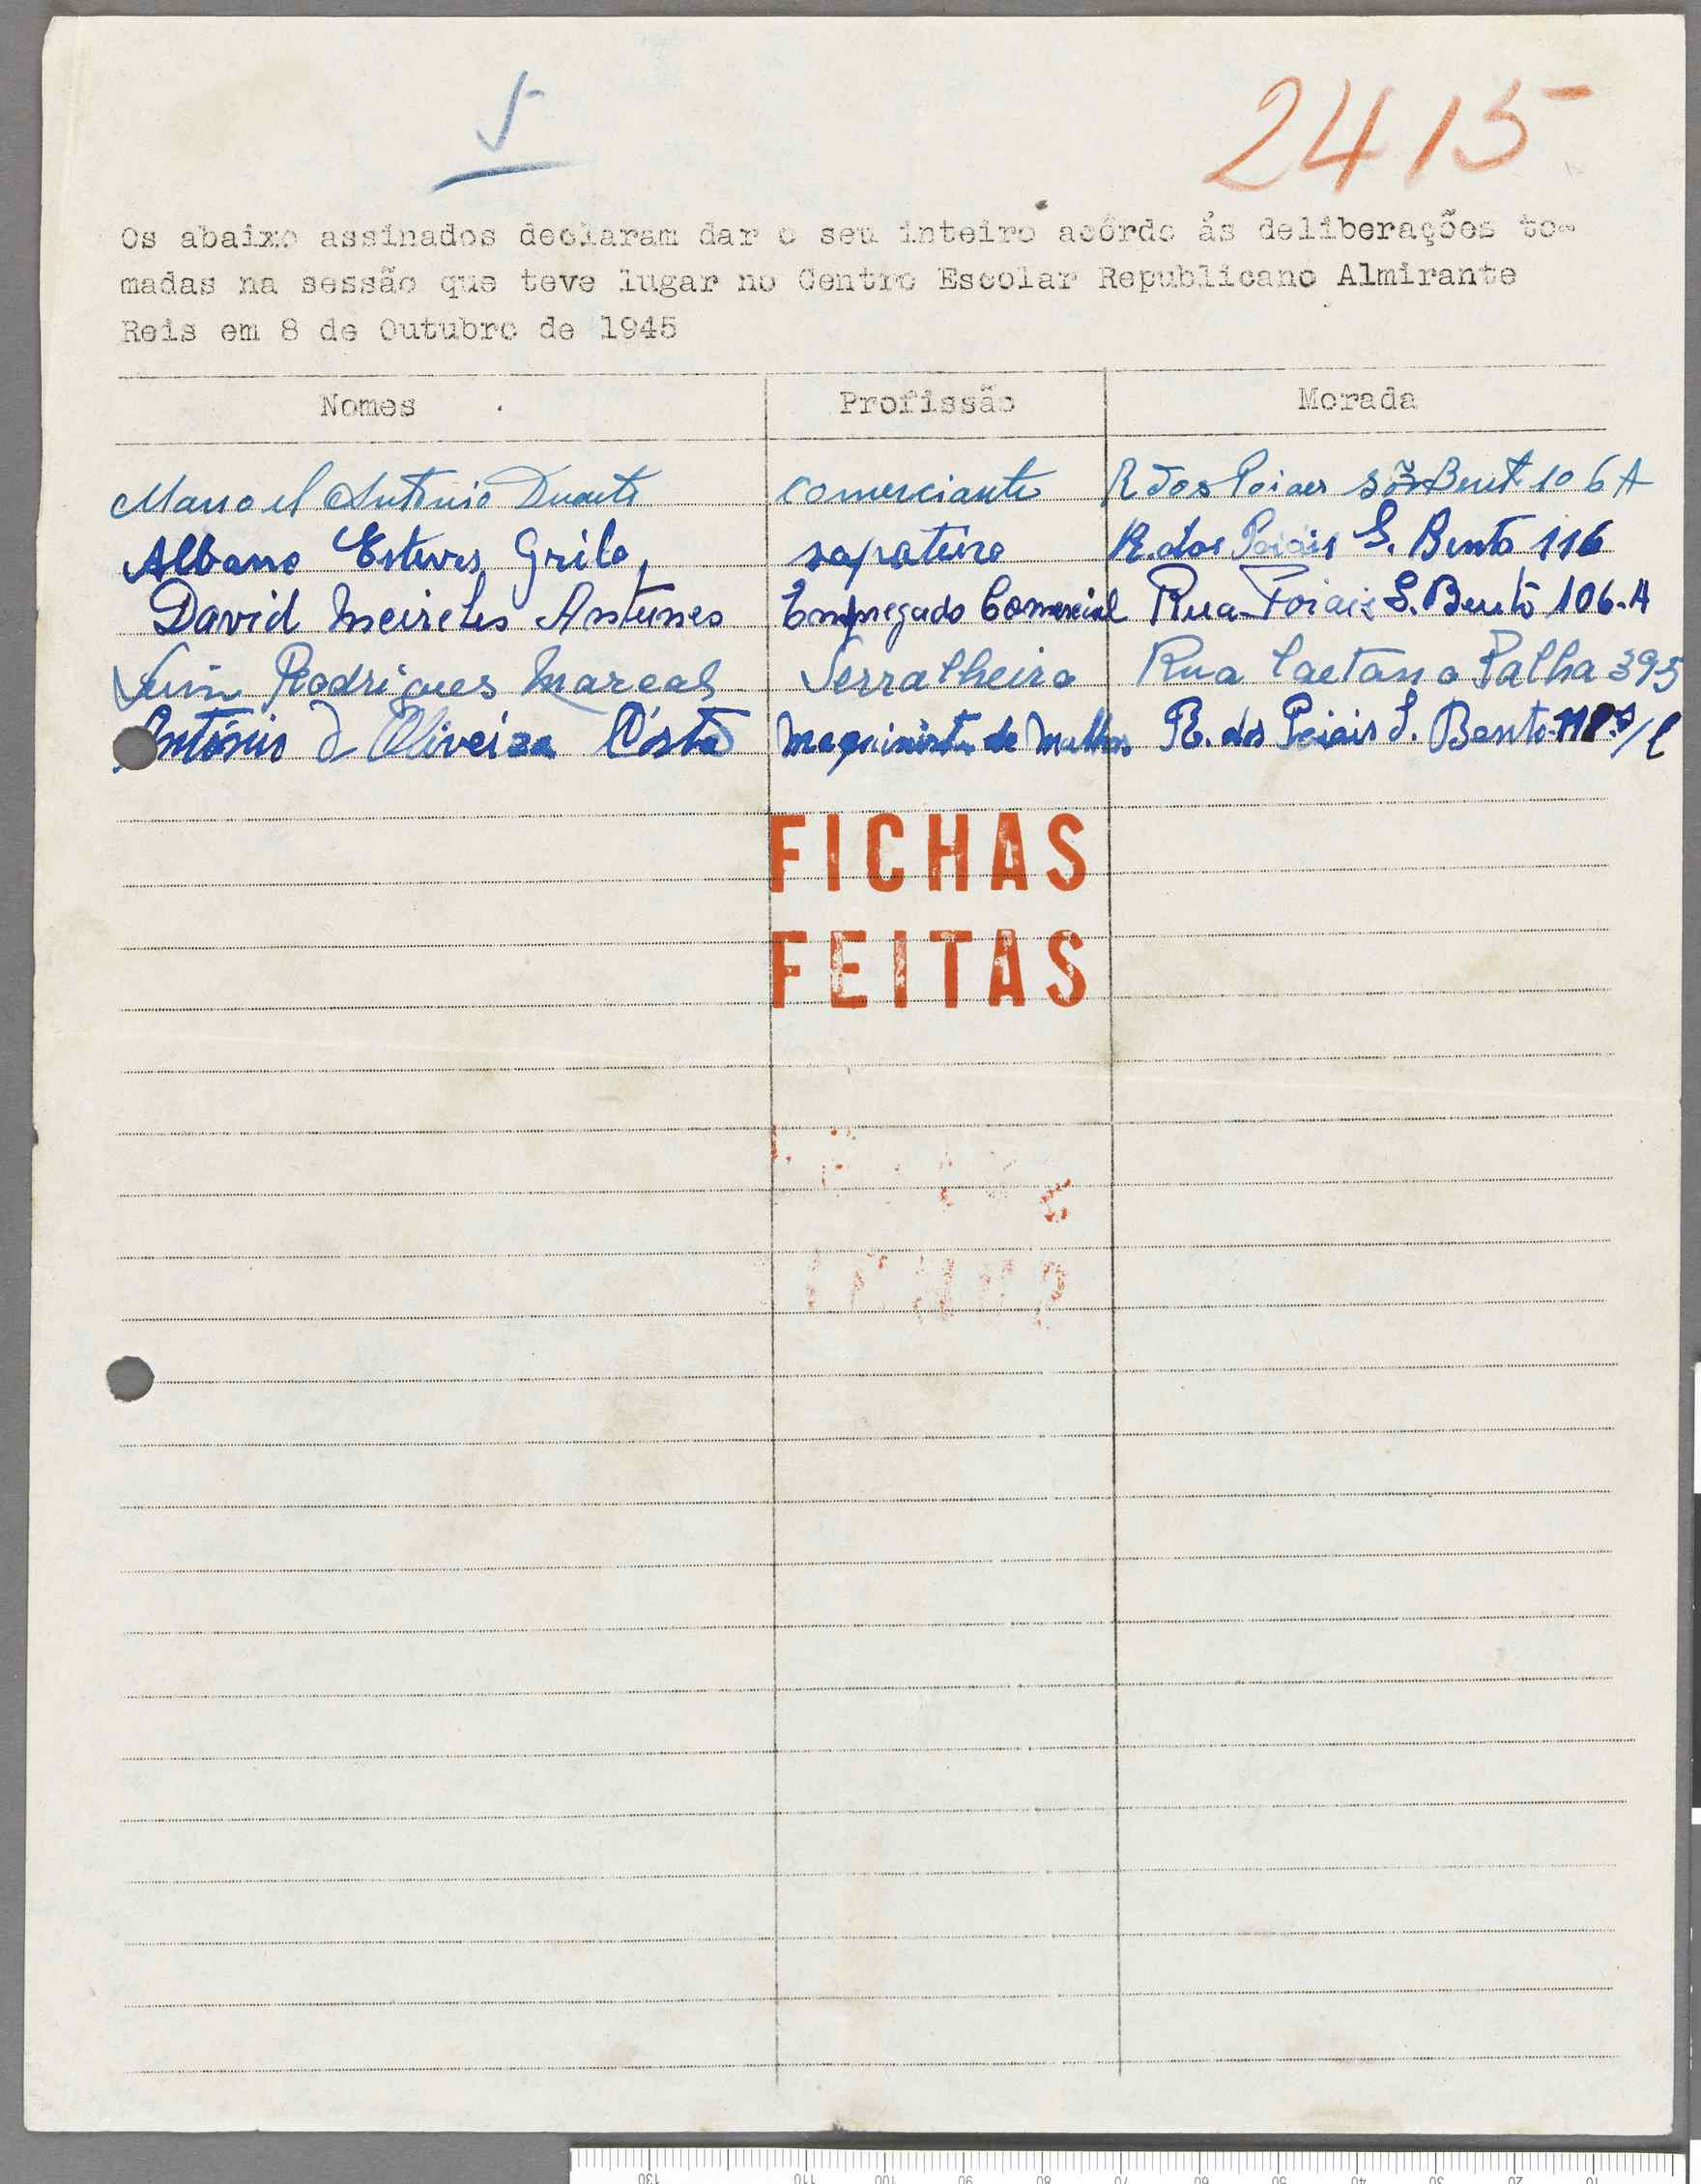 5
2415
Os abaixo assinados declaram dar o seu inteiro acôrdo ás deliberações to-
madas na sessão que teve lugar no Centro Escolar Republicano Almirante
Reis em 8 de Outubro de 1945
Nomes Profissão Morada
Manoel Antonio Duarte comerciante R dos Poiaes São Bento 106 A
Albano Esteves Grilo sapateiro R. dos Poiais S. Bento 116
David Meireles Antunes Empregado Comercial Rua Poiais S. Bento 106-A
Luis Rodrigues Marcal Serralheiro Rua Caetano Palha 39
António d Oliveira Costa Maquinista de Malhas R. dos Poiais S. Bento
FICHAS
FEITAS